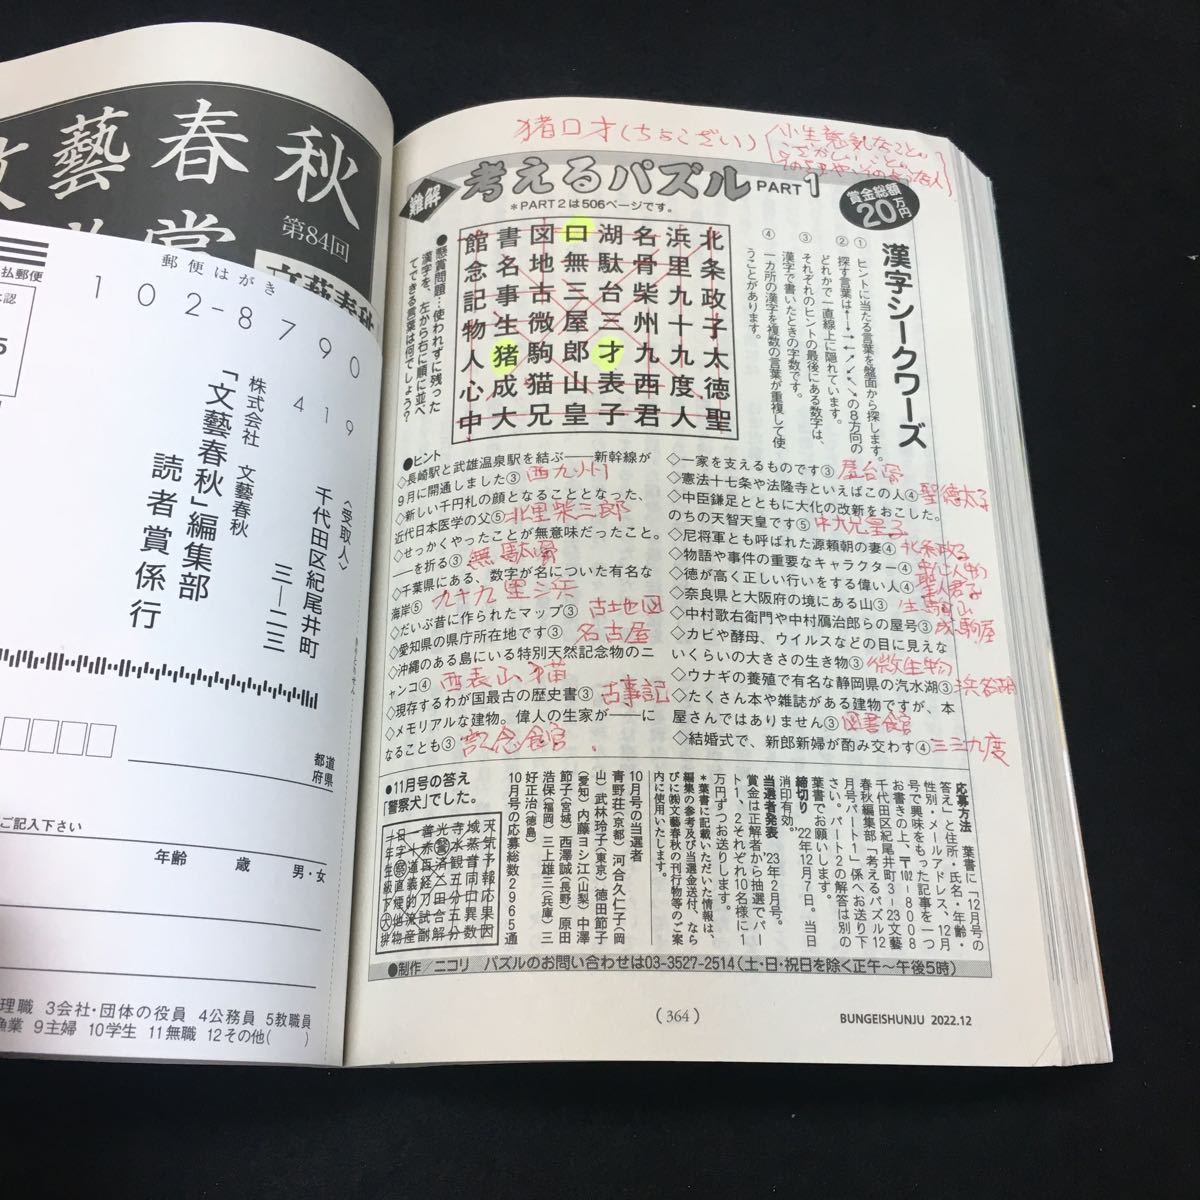 文藝春秋
第84回
郵便はがき
払郵便
102-8790
419
〈受取人〉
千代田区紀尾井町
三―二三
株式会社 文藝春秋
「文藝春秋」編集部
読者賞係行
きりとりせん
都道
府県
ご記入下さい
年齢 歳 男・女
理職 3会社・団体の役員 4公務員 5教職員
漁業 9主婦 10学生 11無職 12その他( )
猪口才(ちょこざい)
難解
考えるパズル PART1
*PART2は506ページです。
賞金総額
20万円
漢字シークワーズ
① ヒントに当たる言葉を盤面から探します。
② 探す言葉は↑→←↓↗↙↖↘の8方向の
どれかで一直線上に隠れています。
③ それぞれのヒントの最後にある数字は、
漢字で書いたときの字数です。
④ 一カ所の漢字を複数の言葉が重複して使
うことがあります。
館書図口湖名浜北
念名地無駄骨里条
記事古三台柴九政
物生微屋三州十子
人猪駒郎才九九太
心成猫山表西度徳
中大兄皇子君人聖
●懸賞問題…使われずに残った
漢字を、左から右に順に並べ
てできる言葉は何でしょう?
●ヒント
◇長崎駅と武雄温泉駅を結ぶ――新幹線が
9月に開通しました③ 西九州
◇新しい千円札の顔となることとなった、
近代日本医学の父⑤ 北里柴三郎
◇せっかくやったことが無意味だったこと。
――を折る③ 無駄骨
◇千葉県にある、数字が名についた有名な
海岸⑤ 九十九里浜
◇だいぶ昔に作られたマップ③ 古地図
◇愛知県の県庁所在地です③ 名古屋
◇沖縄のある島にいる特別天然記念物のニ
ャンコ④ 西表山猫
◇現存するわが国最古の歴史書③ 古事記
◇メモリアルな建物。偉人の生家が――に
なることも③ 記念館
◇一家を支えるものです③ 屋台骨
◇憲法十七条や法隆寺といえばこの人④ 聖徳太子
◇中臣鎌足とともに大化の改新をおこした。
のちの天智天皇です⑤ 中大兄皇子
◇尼将軍とも呼ばれた源頼朝の妻④ 北条政子
◇物語や事件の重要なキャラクター④
◇徳が高く正しい行いをする偉い人④ 聖人君子
◇奈良県と大阪府の境にある山③ 生駒山
◇中村歌右衛門や中村鴈治郎らの屋号③ 成駒屋
◇カビや酵母、ウイルスなどの目に見えな
いくらいの大きさの生き物③ 微生物
◇ウナギの養殖で有名な静岡県の汽水湖③ 浜名湖
◇たくさん本や雑誌がある建物ですが、本
屋さんではありません③ 図書館
◇結婚式で、新郎新婦が酌み交わす④ 三三九度
応募方法 葉書に「12月号の
答え」と住所・氏名・年齢・
性別・メールアドレス、12月
号で興味をもった記事を一つ
お書きの上、〒102-8008
千代田区紀尾井町3-23文藝
春秋編集部「考えるパズル12
月号パート1」係へお送り下
さい。パート2の解答は別の
葉書でお願いします。
締切り '22年12月7日。当日
消印有効。
当選者発表 '23年2月号。
賞金は正解者から抽選でパー
ト1、2それぞれ10名様に1
万円ずつお送りします。
*葉書に記載いただいた情報は、
編集の参考及び当選金送付、なら
びに㈱文藝春秋の刊行物等のご案
内に使用いたします。
10月号の当選者
青野荘(京都) 河合久仁子(岡
山) 武林玲子(東京) 徳田節子
(愛知) 内藤ヨシ江(山梨) 中澤
節子(宮城) 西澤誠(長野) 原田
浩保(福岡) 三上雄三(兵庫) 三
好正治(徳島)
10月号の応募総数2965通
●11月号の答え
「警察犬」でした。
●制作/ニコリ パズルのお問い合わせは03-3527-2514(土・日・祝日を除く正午〜午後5時)
(364)
BUNGEISHUNJU 2022.12